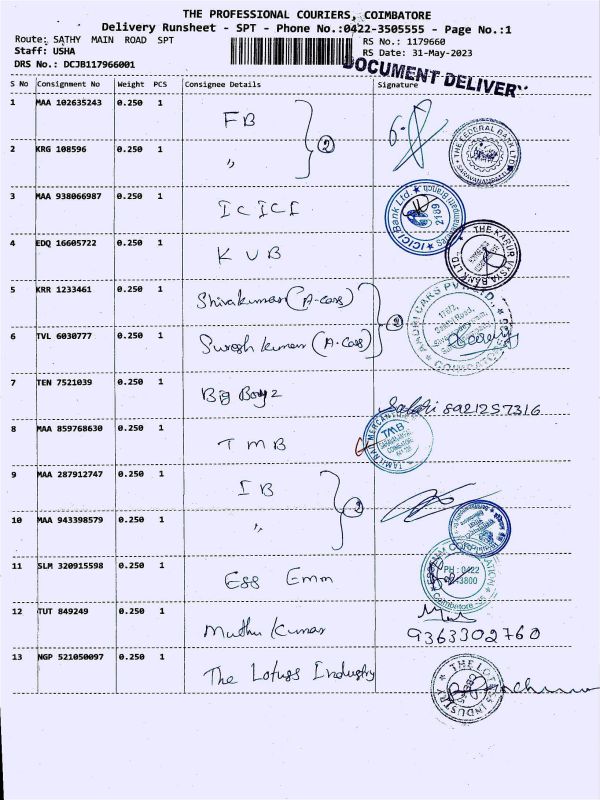 THE PROFESSIONAL COURIERS, COIMBATORE
Delivery Runsheet - SPT - Phone No.:0422-3505555 - Page No.:1
Route: SATHY MAIN ROAD SPT
RS No.: 1179660
Staff: USHA
RS Date: 31-May-2023
DRS No.: DCJB117966001
DOCUMENT DELIVERY
S No Consignment No Weight PCS Consignee Details Signature
1 MAA 102635243 0.250 1 FB
2
THE FEDERAL BANK LTD
2 KRG 108596 0.250 1 "
3 MAA 938066987 0.250 1 ICICI
ICICI Bank Ltd.
2189
4 EDQ 16605722 0.250 1 KVB
THE KARUR VYSYA BANK LTD.
5 KRR 1233461 0.250 1 Shivakumar (A-cars)
2
CARS PVT LTD.
6 TVL 6030777 0.250 1 Suresh kumar (A-Cars)
7 TEN 7521039 0.250 1 Big Boyz
8921257316
8 MAA 859768630 0.250 1 TMB
TMB
9 MAA 287912747 0.250 1 IB
2
10 MAA 943398579 0.250 1 "
11 SLM 320915598 0.250 1 Ess Emm
PH : 0422
3800
Coimbatore
12 TUT 849249 0.250 1 Muthu Kumar
9363302760
13 NGP 521050097 0.250 1 The Lotuss Industry
THE LOTUSS INDUSTRY